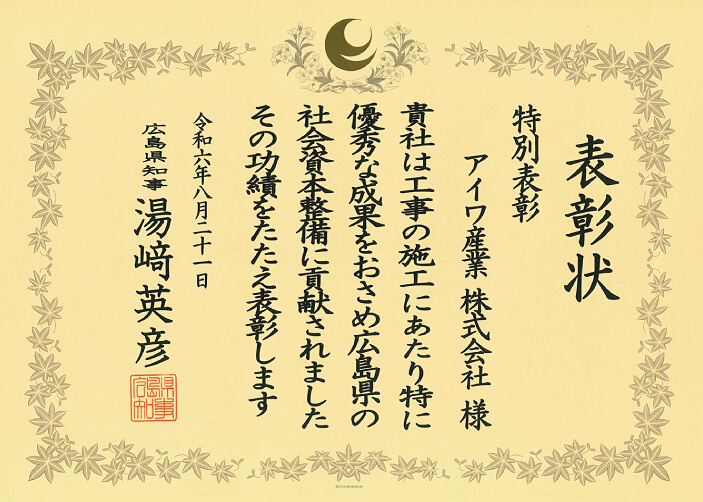 表彰状
特別表彰
アイワ産業 株式会社 様
貴社は工事の施工にあたり特に
優秀な成果をおさめ広島県の
社会資本整備に貢献されました
その功績をたたえ表彰します
令和六年八月二十一日
広島県知事 湯﨑英彦